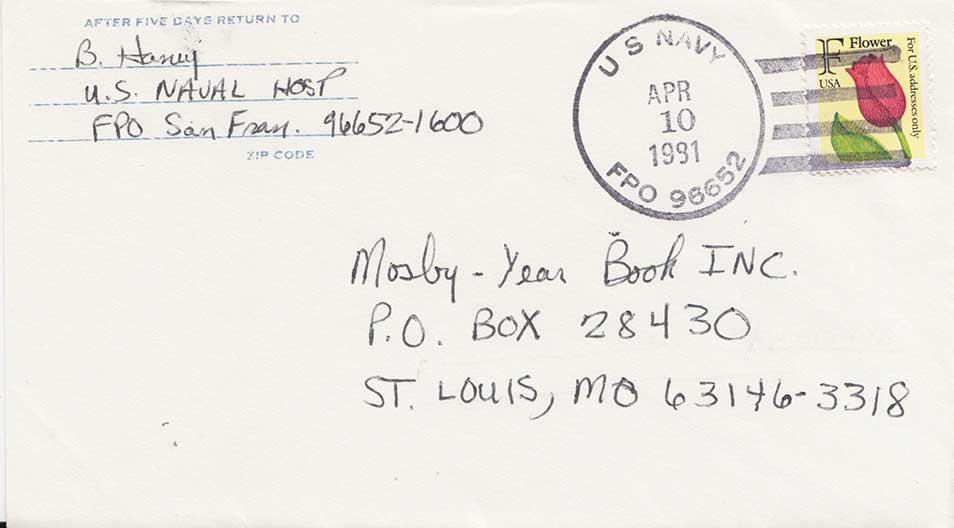 AFTER FIVE DAYS RETURN TO
B. Haney
U.S. NAVAL HOSP
FPO San Fran. 96652-1600
ZIP CODE
US NAVY
APR
10
1991
FPO 96652
F Flower
USA
For U.S. addresses only
Mosby-Year Book INC.
P.O. BOX 28430
ST. LOUIS, MO 63146-3318